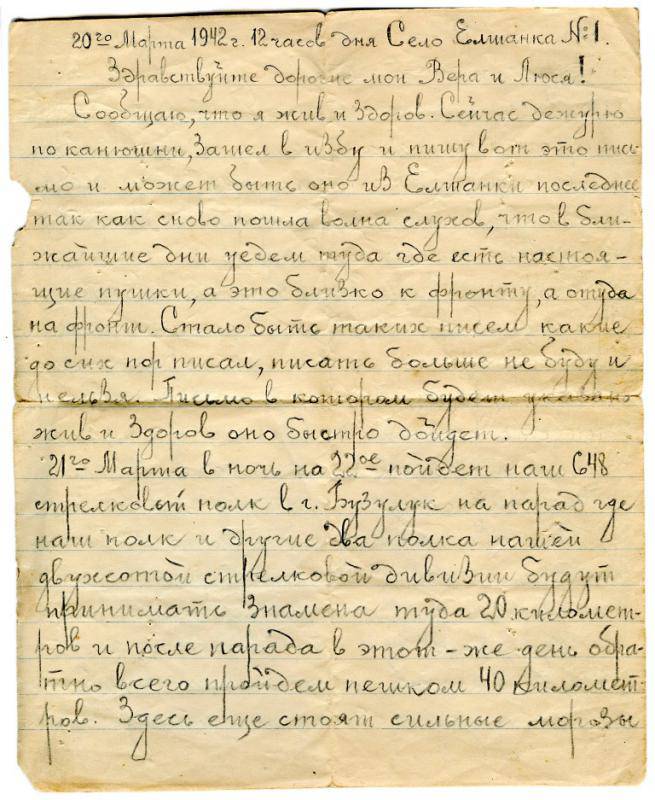 20го Марта 1942 г. 12 часов дня Село Елшанка №1.
Здравствуйте дорогие мои Вера и Люся!
Сообщаю, что я жив и здоров. Сейчас дежурю
по канюшни, зашел в избу и пишу вот это пись-
мо и может быть оно из Елшанки последнее
так как сново пошла волна слухов, что в бли-
жайшие дни уедем туда где есть настоя-
щие пушки, а это близко к фронту, а отуда
на фронт. Стало быть таких писем какие
до сих пор писал, писать больше не буду и
нельзя. Письмо в котором будет указано
жив и здоров оно быстро дойдет.
21го Марта в ночь на 22ое пойдет наш 648
стрелковый полк в г. Бузулук на парад где
наш полк и другие два полка нашей
двухсотой стрелковой дивизии будут
принимать знамена туда 20 километ-
ров и после парада в этот-же день обра-
тно всего пройдем пешком 40 километ-
ров. Здесь еще стоят сильные морозы